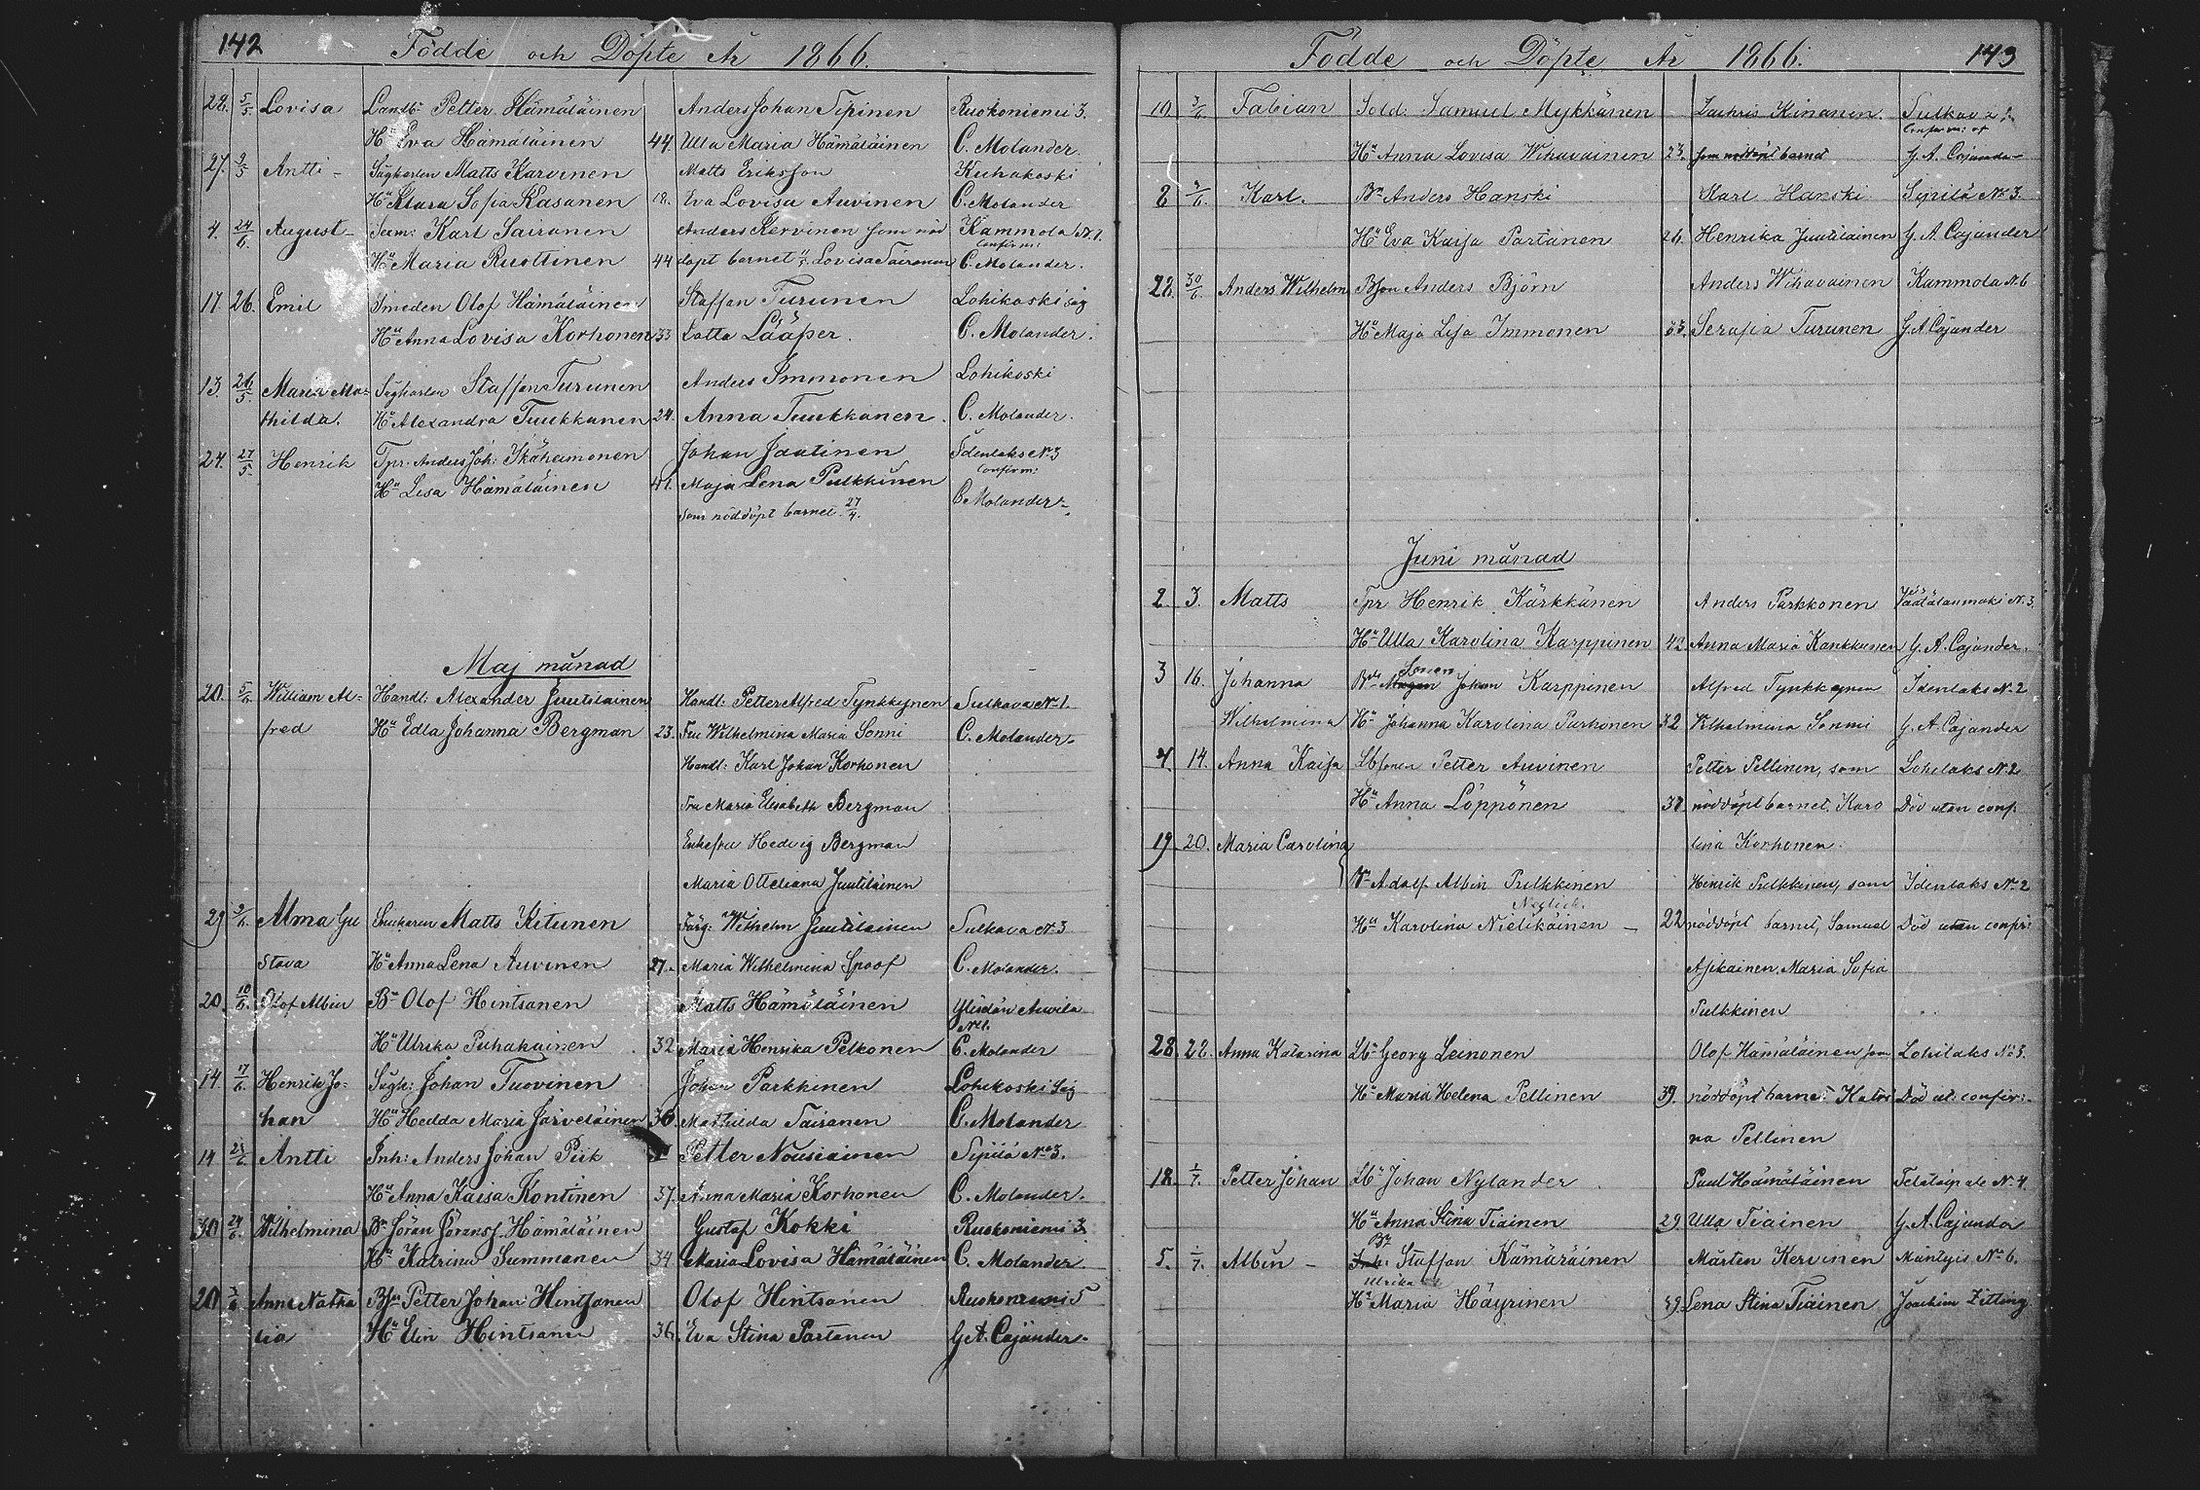 142 Födde och Döpte År 1866.
28. 5/5. Lovisa Landb: Petter Hämäläinen Anders Johan Sipinen Ruokoniemi 3.
Hu Eva Hämäläinen 44. Ulla Maria Hämäläinen C. Molander
27. Antti Sågkarlen Matts Karvinen Matts Eriksson Kuhakoski
Hu Klara Sofia Kasanen 18. Eva Lovisa Auvinen C. Molander
4. 24/6. August Karl Sairanen Anders Kervinen som nöd Kammola N:1.
Confirm:
Hu Maria Ruottinen 44 döpt barnet Lovisa Sairanen C. Molander.
17. 26. Emil Smeden Olof Hämäläinen Staffan Turunen Lohikoski såg
Hu Anna Lovisa Korhonen 33 Lotta Lääper. C. Molander.
13. 26/5. Maria Ma- Sågkarlen Staffan Turunen Anders Immonen Lohikoski
thilda. Hu Alexandra Tuukkanen 24. Anna Tuukkanen. C. Molander.
24. 27/5. Henrik Tpr. Anders Joh: Ikäheimonen Johan Jaatinen Idenlaks N:3
Confirm:
Hu Lisa Hämäläinen 41. Maja Lena Pulkkinen C. Molander
Som nöddöpt barnet 27/4.
Maj månad
20. 5/6. William Al- Handl: Alexander Juutilainen Handl: Petter Alfred Tynkkynen Sulkava N:1.
fred Hu Edla Johanna Bergman 23. Fru Wilhelmina Maria Sonni C. Molander.
Handl: Karl Johan Korhonen
Fru Maria Elisabeth Bergman
Enkefru Hedvig Bergman
Maria Otteliana Juutilainen
29 9/6. Alma Gu Matts Kitunen Färg: Wilhelm Juutilainen Sulkava N:3
stava Hu Anna Lena Auvinen 27. Maria Wilhelmina Spoof C. Molander.
20. 10/6. Olof Albin Bn Olof Hintsanen Matts Hämäläinen Ylisdän Auvila
Hu Ulrika Puhakainen 32 Maria Henrika Pelkonen C. Molander
14. 17/6. Henrik Jo- Sågk: Johan Tuovinen Johan Parkkinen Lohikoski såg
han Hu Hedda Maria Järveläinen 36. Mathilda Sairanen C. Molander
14 Antti Inh: Anders Johan Piik Petter Nousiainen Sipilä No 3.
Hu Anna Kaisa Kontinen 37. Anna Maria Korhonen C. Molander.
30 24/6. Wilhelmina Bn Jöran Jöransf. Hämäläinen Gustaf Kokki Ruokoniemi 3.
Hu Katrina Summanen 34 Maria Lovisa Hämäläinen C. Molander
20 Anna Natha Petter Johan Hintsanen Olof Hintsanen Ruokoniemi 5
lia Hu Elin Hintsanen 36. Eva Stina Partanen G. A. Cajander.
Födde och Döpte År 1866. 143
10. 3/6 Fabian Sold. Samuel Mykkänen Zachris Kinanen. Sulkava 2
Confirm: af
Hu Anna Lovisa Wihavainen 23. som nöddöpt barnet G. A. Cajander
8 Karl. Bn Anders Hanski Karl Hanski Sipilä No 3.
Hu Eva Kaisa Partanen 26. Henrika Juutilainen G. A. Cajander
28. 30/6. Anders Wilhelm Bson Anders Björn Anders Wihavainen Kammola N:6
Hu Maja Lisa Immonen 33. Serafia Turunen G. A. Cajander
Juni månad
2 3. Matts Tpr Henrik Kärkkänen Anders Parkkonen Väätälänmäki N:3.
Hu Ulla Karolina Karppinen 42 Anna Maria Kankkunen G. A. Cajander.
Sonen
3 16. Johanna Johan Karppinen Alfred Tynkkynen Idenlaks No 2
Wilhelmina Hu Johanna Karolina Purhonen 32 Wilhelmina Sonni G. A. Cajander
4. 14. Anna Kaisa Lbsonen Petter Auvinen Petter Pellinen, som Lohilaks N:2
Hu Anna Löppönen 38 nöddöpt barnet. Karo Död utan conf.
19. 20. Maria Carolina lina Korhonen.
Bn Adolf Albin Pulkkinen Henrik Pulkkinen, som Idenlaks No 2
Hu Karolina Nielikäinen 22 nöddöpt barnet, Samuel Död utan confir:
Asikainen, Maria Sofia
Pulkkinen
28. 22. Anna Katarina Lb: Georg Leinonen Olof Hämäläinen som Lohilaks No 3.
Hu Maria Helena Pellinen 39. nöddöpt barnet Katri Död ut: confir:
na Pellinen
18. 1/7. Petter Johan Lb: Johan Nylander Paul Hämäläinen No 4.
Hu Anna Stina Tiainen 29. Ulla Tiainen G. A. Cajander
5. 1/7. Albin Staffan Kämäräinen Mårten Kervinen Mäntyis No 6.
Ulrika
Hu Maria Häyrinen 39. Lena Stina Tiainen Joachim Zitting